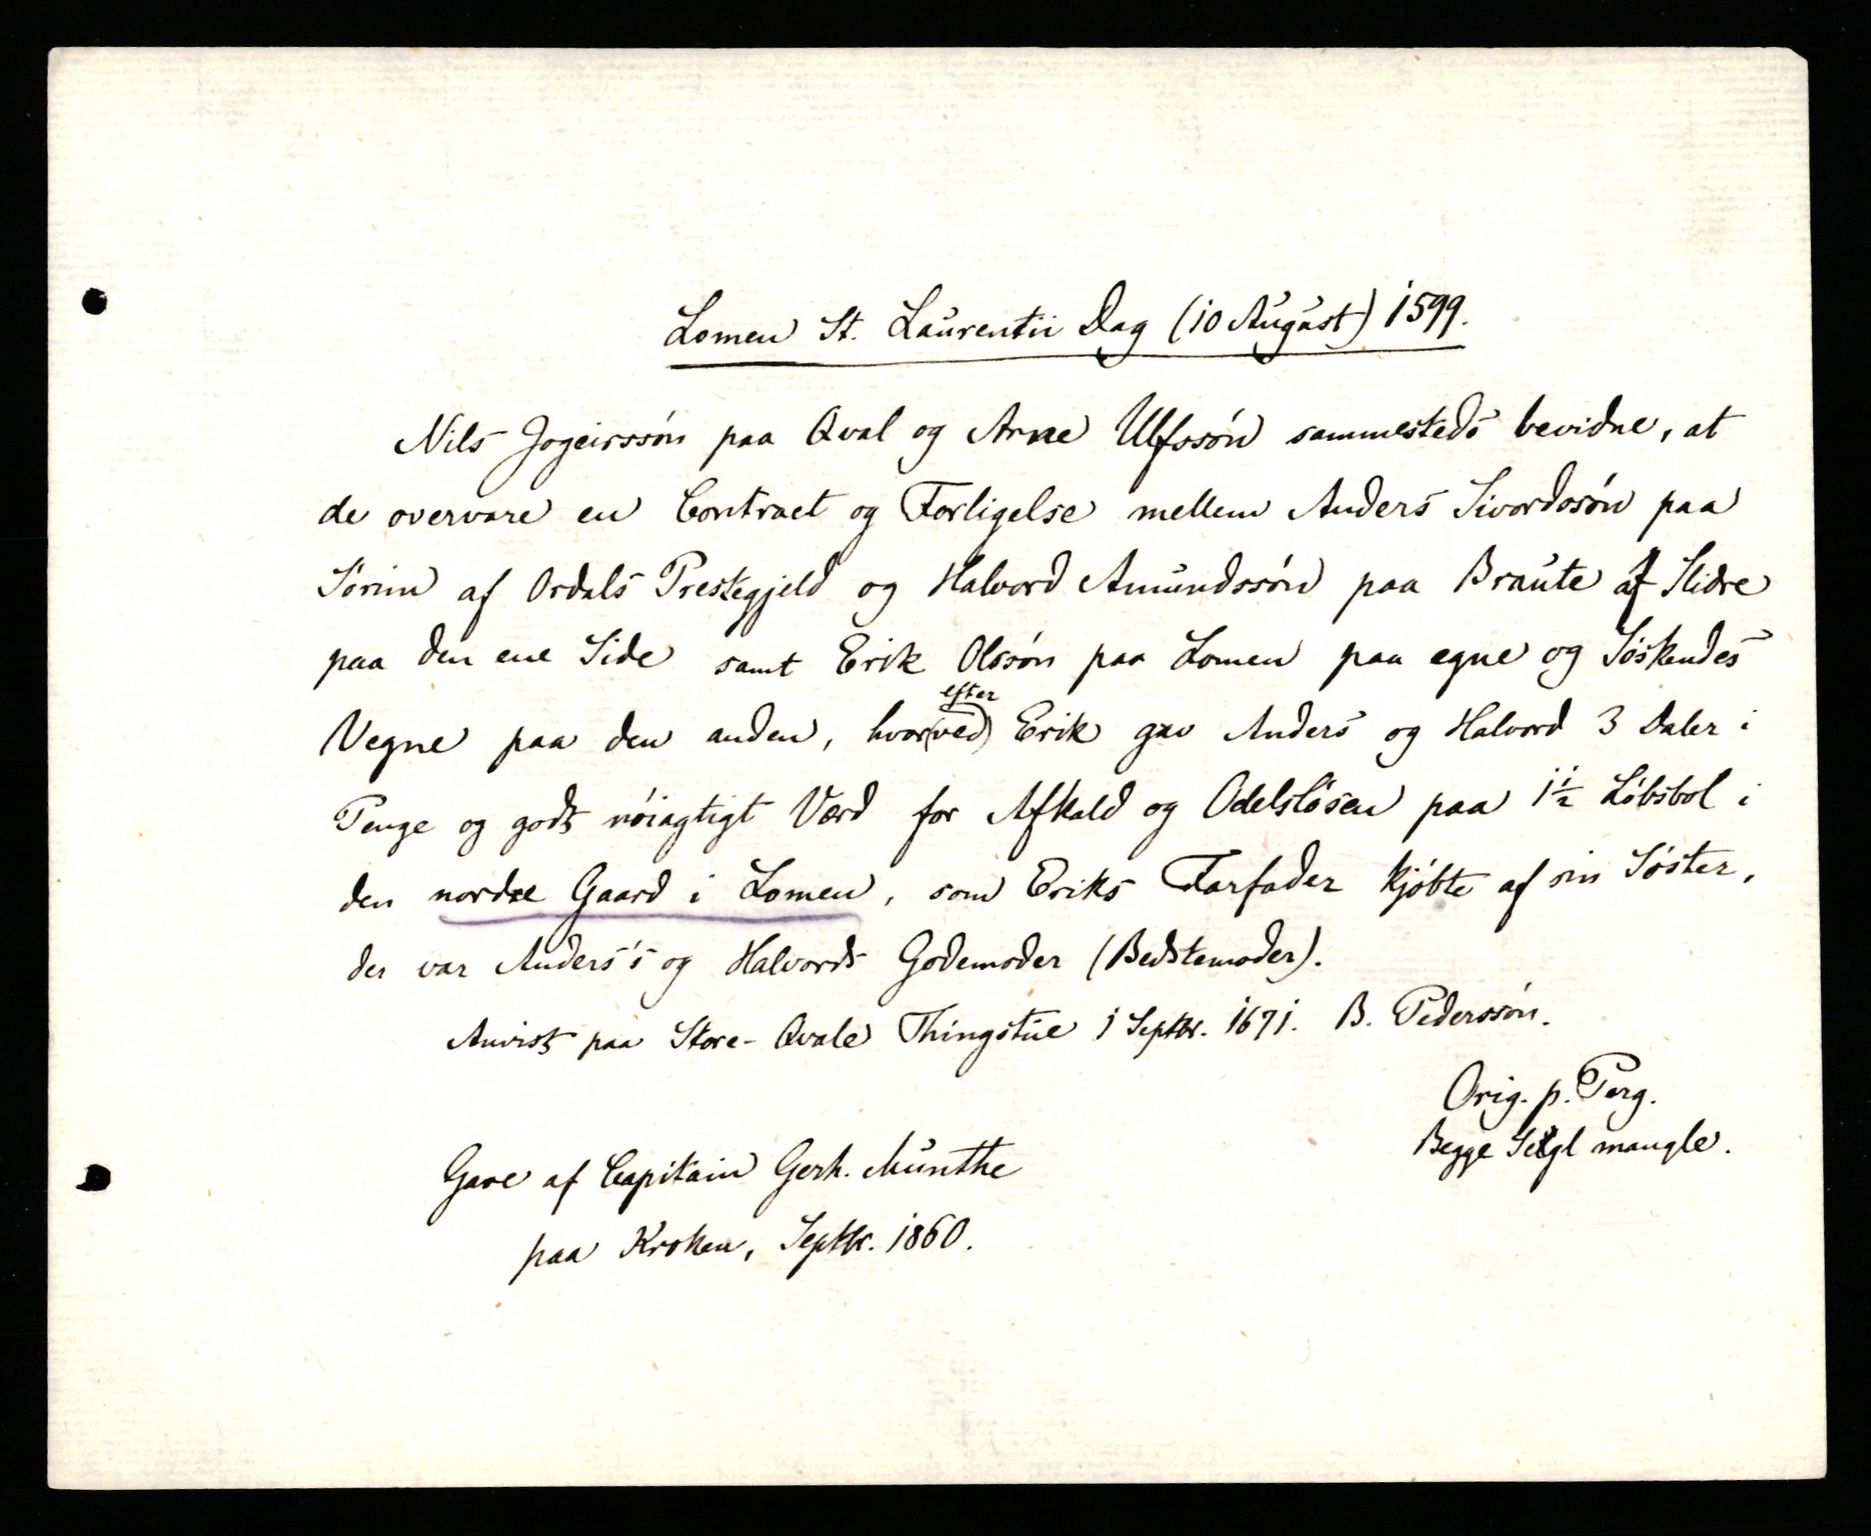 Lomen St. Laurentii Dag (10 August) 1599.
Nils Jogeirssón paa Qval og Arne Ulfssón sammesteds bevidne, at
de overvare en Contract og Forligelse mellem Anders Sivordssón paa
Sórim af Ordals Prestegjeld og Halvord Amundssón paa Braute af Slidre
paa den ene Side samt Erik Olssón paa Lomen paa egne og Sóskendes
efter
Vegne paa den anden, hvor(ved) Erik gav Anders og Halvord 3 Daler i
Penge og godt nóiagtigt Værd for Afkald og Odelslósen paa 1½ Lóbsbol i
den nordre Gaard i Lomen, som Eriks Farfader kjóbte af sin Sóster,
der var Anders's og Halvords Godemoder (Bedstemoder).
Anvist paa Store-Qvale Thingstue 1 Septbr. 1671. B. Pederssón.
Orig. p. Perg.
Begge Seigl mangle.
Gave af Capitain Gerh. Munthe
paa Kroken, Septbr. 1860.